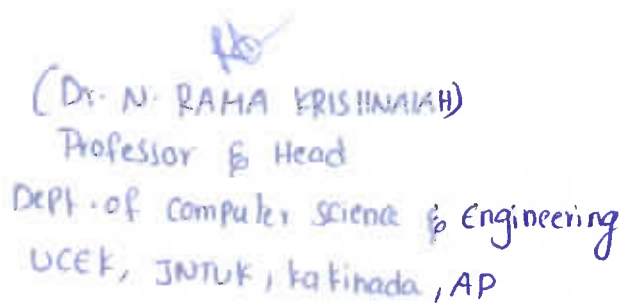 (Dr. N. RAMA KRISHNAIAH)
Professor & Head
Dept. of computer science & Engineering
UCEK, JNTUK, kakinada, AP